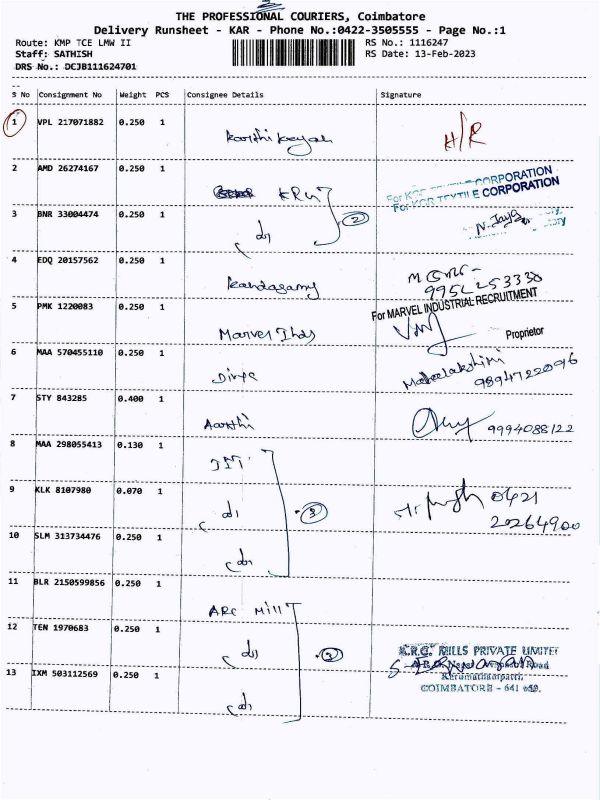 THE PROFESSIONAL COURIERS, Coimbatore
Delivery Runsheet - KAR - Phone No.:0422-3505555 - Page No.:1
Route: KMP TCE LMW II
RS No.: 1116247
Staff: SATHISH
RS Date: 13-Feb-2023
DRS No.: DCJB111624701
S No Consignment No Weight PCS Consignee Details Signature
1 VPL 217071882 0.250 1 Karthikeyan H/R
2 AMD 26274167 0.250 1 KRG
TEXTILE CORPORATION
For KCR TEXTILE CORPORATION
3 BNR 33004474 0.250 1 2 N. Jaya
4 EDQ 20157562 0.250 1 Kandasamy
5 PMK 1220083 0.250 1 Marvel Inds For MARVEL INDUSTRIAL RECRUITMENT
Proprietor
6 MAA 570455110 0.250 1 Divya Mahalakshmi
9894722096
7 STY 843285 0.400 1 Aarthi 9994088122
8 MAA 298055413 0.130 1
9 KLK 8107980 0.070 1 3 0421
20264900
10 SLM 313734476 0.250 1
11 BLR 2150599856 0.250 1 ARC Mill
12 TEN 1970683 0.250 1 3 MILLS PRIVATE LIMITED
Road
13 IXM 503112569 0.250 1
COIMBATORE - 641